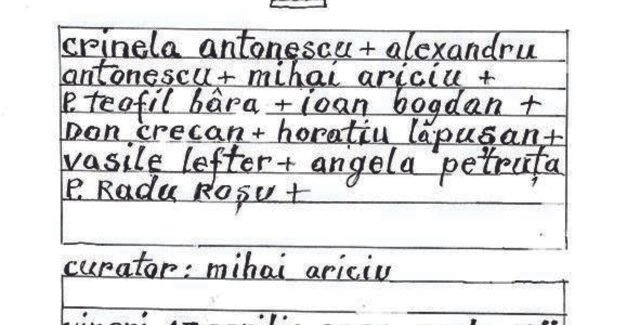 crinela antonescu + alexandru
antonescu + mihai ariciu +
P. teofil bâra + ioan bogdan +
Dan crecan + horațiu lăpușan +
vasile lefter + angela petruța
P. Radu Roșu +
curator: mihai ariciu